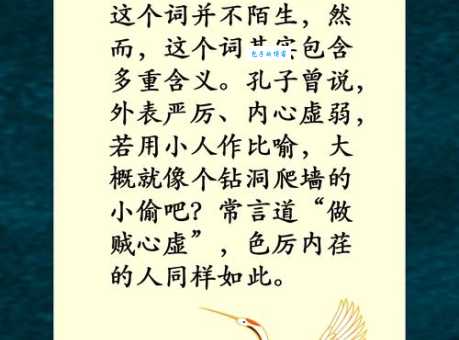 这个词并不陌生，然
而，这个词其实包含
多重含义。孔子曾说，
外表严厉、内心虚弱，
若用小人作比喻，大
概就像个钻洞爬墙的
小偷吧？常言道“做
贼心虚”，色厉内荏
的人同样如此。